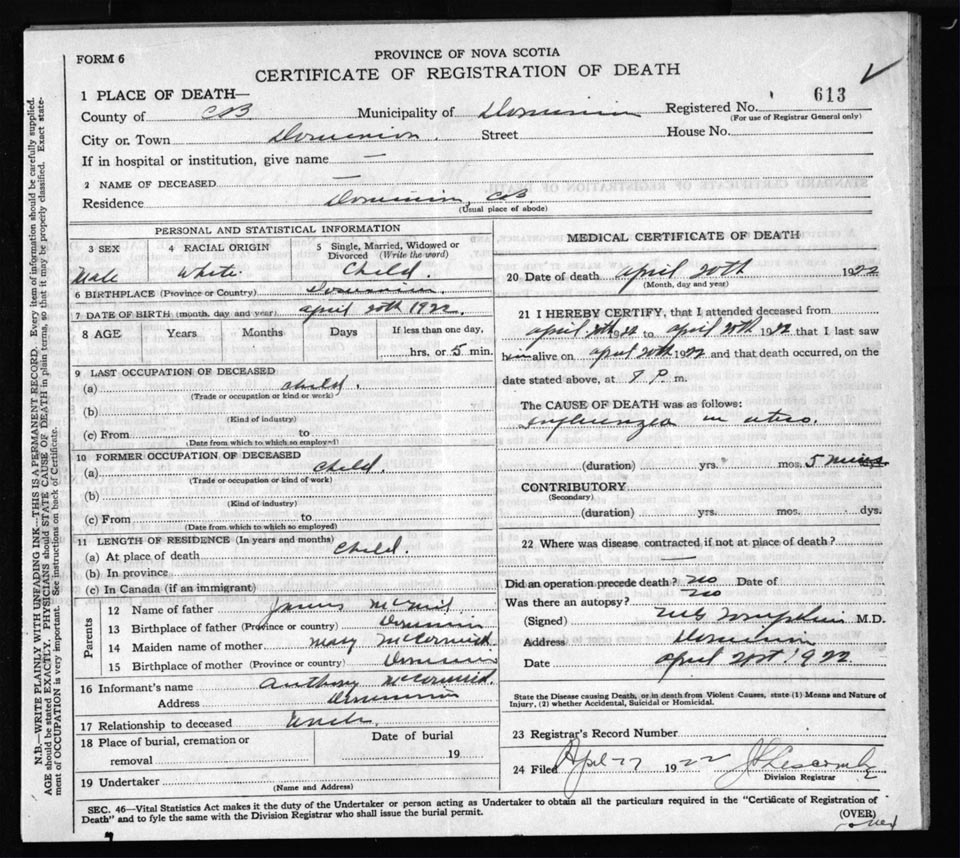 FORM 6
PROVINCE OF NOVA SCOTIA
CERTIFICATE OF REGISTRATION OF DEATH
1 PLACE OF DEATH—
County of CB Municipality of Dominion Registered No. 613
(For use of Registrar General only)
City or Town Dominion. Street House No.
If in hospital or institution, give name —
2 NAME OF DECEASED —
Residence Dominion, CB.
(Usual place of abode)
PERSONAL AND STATISTICAL INFORMATION
3 SEX 4 RACIAL ORIGIN 5 Single, Married, Widowed or Divorced (Write the word)
Male White. Child.
6 BIRTHPLACE (Province or Country) Dominion.
7 DATE OF BIRTH (month, day and year) April 20th 1922.
8 AGE Years Months Days If less than one day,
hrs. or 5 min.
9 LAST OCCUPATION OF DECEASED
(a) Child.
(Trade or occupation or kind or work)
(b)
(Kind of industry)
(c) From to
(Date from which to which so employed)
10 FORMER OCCUPATION OF DECEASED
(a) Child.
(Trade or occupation or kind of work)
(b)
(Kind of industry)
(c) From to
(Date from which to which so employed)
11 LENGTH OF RESIDENCE (In years and months)
(a) At place of death Child.
(b) In province
(c) In Canada (if an immigrant)
Parents
12 Name of father James McNeil
13 Birthplace of father (Province or country) Dominion
14 Maiden name of mother Mary McCormick
15 Birthplace of mother (Province or country) Dominion
16 Informant's name Anthony McCormick.
Address Dominion
17 Relationship to deceased Uncle.
18 Place of burial, cremation or removal Date of burial
19
19 Undertaker
(Name and Address)
MEDICAL CERTIFICATE OF DEATH
20 Date of death April 20th 1922
(Month, day and year)
21 I HEREBY CERTIFY, that I attended deceased from
April 20th 1922 to April 20th 1922 that I last saw
him alive on April 20th 1922 and that death occurred, on the
date stated above, at P. m.
The CAUSE OF DEATH was as follows:
Influenza in utero.
(duration) yrs. mos. 5 mins
CONTRIBUTORY
(Secondary)
(duration) yrs. mos. dys.
22 Where was disease contracted if not at place of death?
—
Did an operation precede death? No Date of
Was there an autopsy? No
(Signed) M.D.
Address Dominion
Date April 21st 1922
State the Disease causing Death, or in death from Violent Causes, state (1) Means and Nature of
Injury, (2) whether Accidental, Suicidal or Homicidal.
23 Registrar's Record Number
24 Filed Apl 27 1922
Division Registrar
SEC. 46—Vital Statistics Act makes it the duty of the Undertaker or person acting as Undertaker to obtain all the particulars required in the "Certificate of Registration of
Death" and to fyle the same with the Division Registrar who shall issue the burial permit.
(OVER)
over
N.B.—WRITE PLAINLY WITH UNFADING INK—THIS IS A PERMANENT RECORD. Every item of information should be carefully supplied.
AGE should be stated EXACTLY. PHYSICIANS should STATE CAUSE OF DEATH in plain terms, so that it may be properly classified. Exact state-
ment of OCCUPATION is very important. See instructions on back of Certificate.